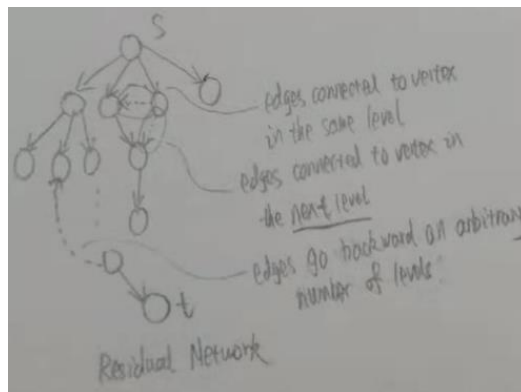 S
edges connected to vertex
in the same level
edges connected to vertex in
the next level
edges go backward an arbitrary
number of levels.
t
Residual Network